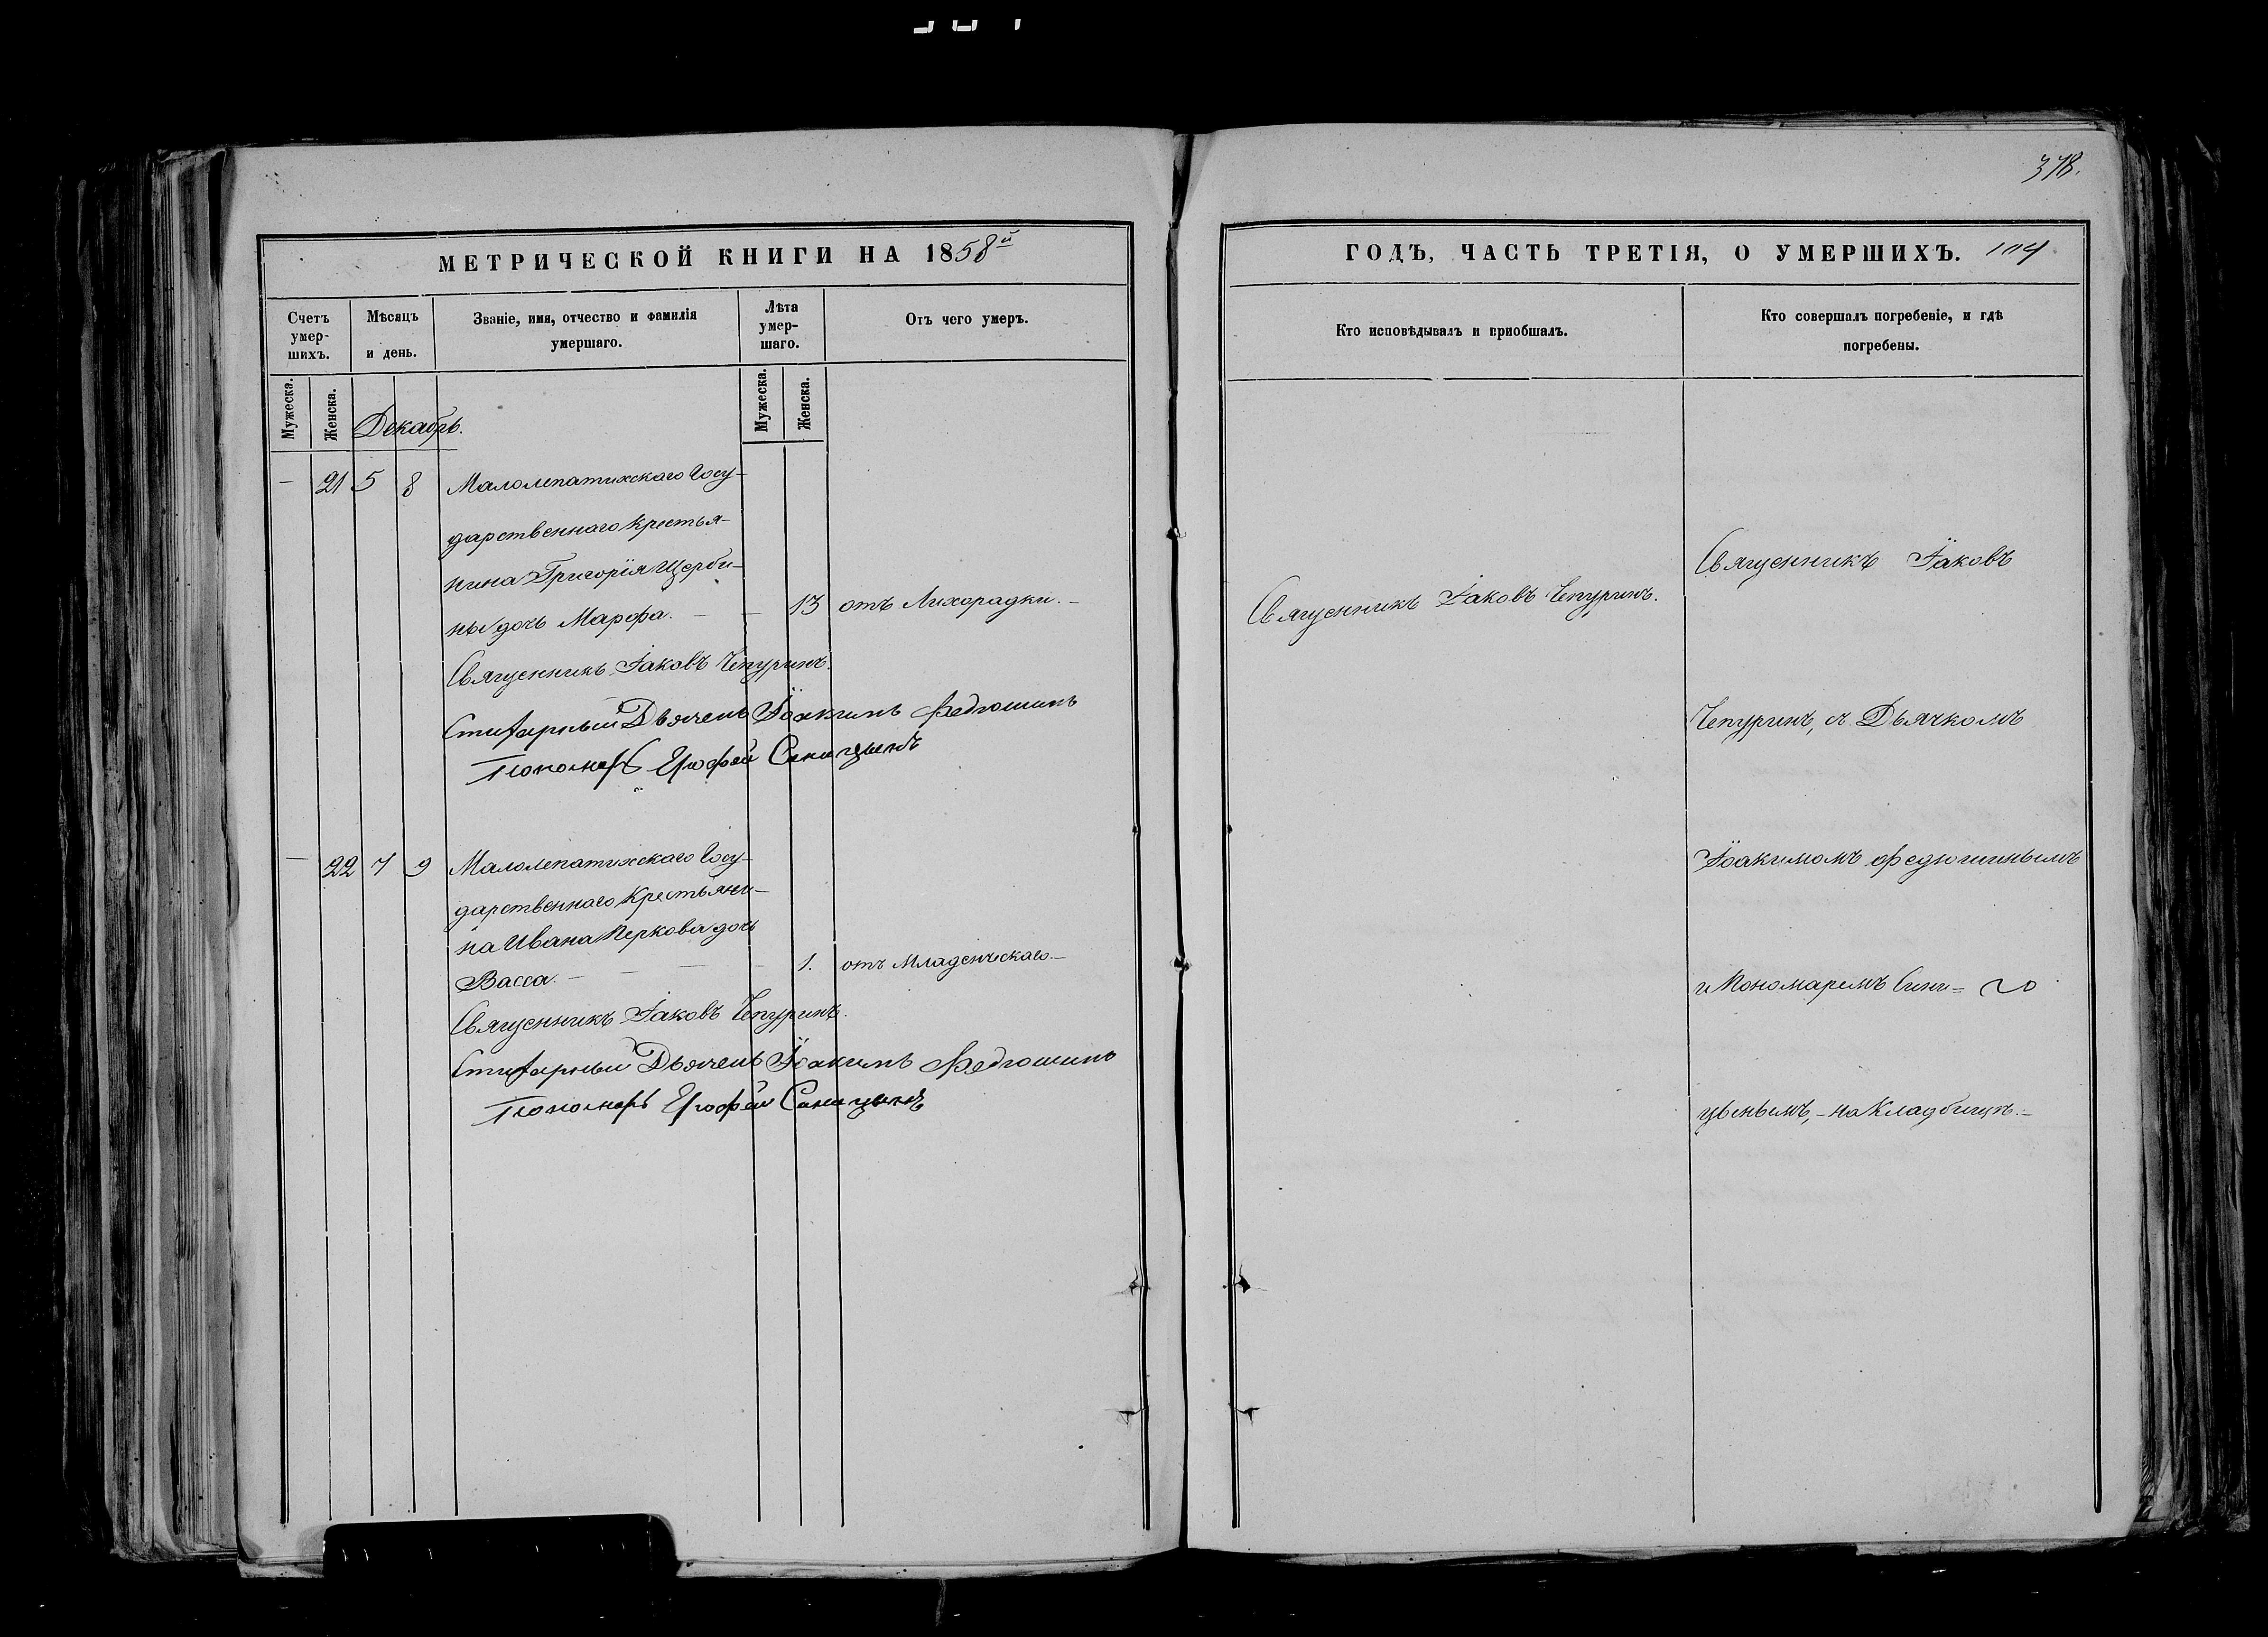 378.
МЕТРИЧЕСКОЙ КНИГИ НА 1858й
Счетъ умер-шихъ.
Мѣсяцъ и день.
Званіе, имя, отчество и фамилія умершаго.
Лѣта умер-шаго.
Отъ чего умеръ.
Мужеска.
Женска.
Мужеска.
Женска.
Декабрь.
— 21 5 8 Малолепатихскаго Госу-
дарственнаго крестья-
нина Григорія Щерби-
ны дочь Марфа. — — 13 отъ Лихорадки. —
Священникъ Іаковъ Чепуринъ.
Стихарный Дьячекъ Іоакимъ Федюшинъ
Пономарь Ерофей Синицынъ
— 22 7 9 Малолепатихскаго Госу-
дарственнаго Крестьяни-
на Ивана Перкова дочь
Васса. — — — — 1. отъ Младенческаго. —
Священникъ Іаковъ Чепуринъ.
Стихарный Дьячекъ Іоакимъ Федюшинъ
Пономарь Ерофей Синицынъ
ГОДЪ, ЧАСТЬ ТРЕТІЯ, О УМЕРШИХЪ.
Кто исповѣдывалъ и приобшалъ.
Кто совершалъ погребеніе, и гдѣ
погребены.
Священникъ Іаковъ Чепуринъ.
Священникъ Іаковъ
Чепуринъ, съ Дьячкомъ
Іоакимомъ Федюшинымъ
и Пономаремъ Сини=
цынымъ, — на Кладбищѣ. —